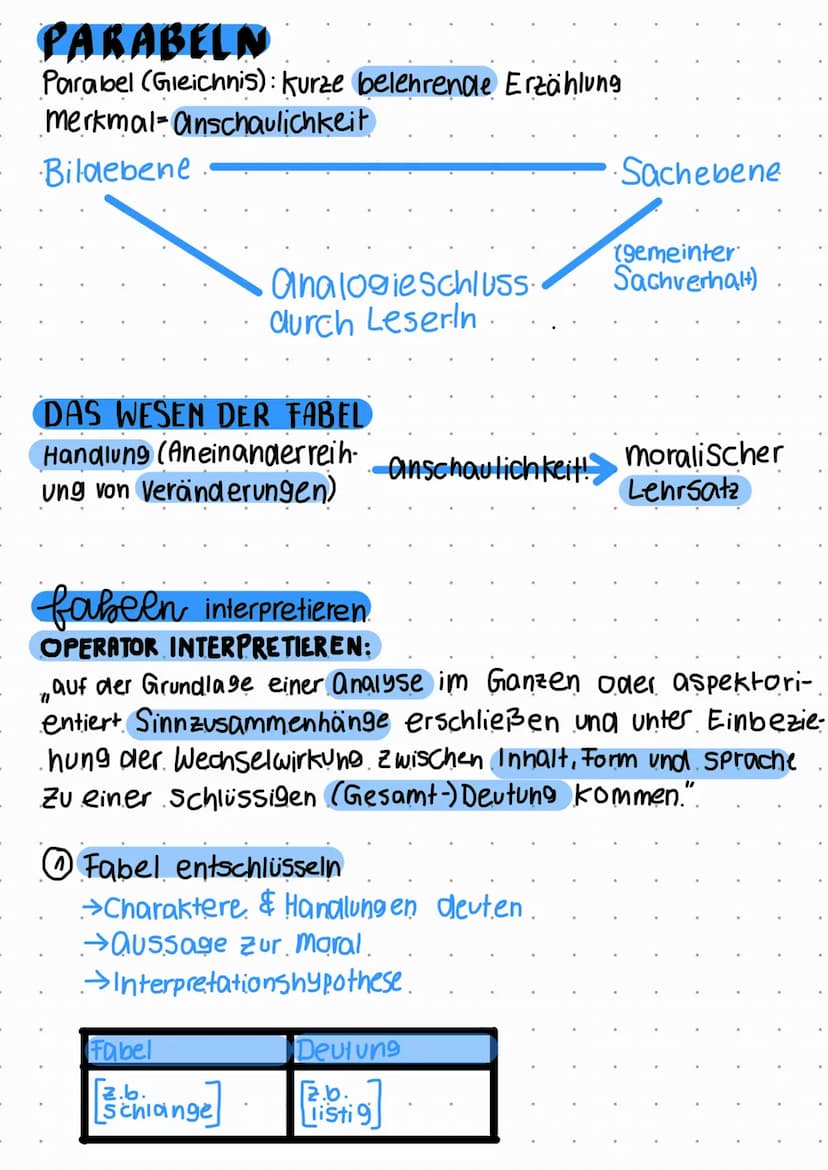 PARABELN
Parabel (Gleichnis): kurze belehrende Erzählung
Merkmal= Anschaulichkeit
Bildebene
Sachebene
(gemeinter
Sachverhalt)
Analogieschluss
durch LeserIn
DAS WESEN DER FABEL
Handlung (Aneinanderreih-
ung von Veränderungen)
Anschaulichkeit!
moralischer
Lehrsatz
fabeln interpretieren
OPERATOR INTERPRETIEREN:
„auf der Grundlage einer Analyse im Ganzen oder aspektori-
entiert Sinnzusammenhänge erschließen und unter Einbezie-
hung der Wechselwirkung zwischen Inhalt, Form und Sprache
zu einer schlüssigen (Gesamt-) Deutung kommen."
① Fabel entschlüsseln
→Charaktere & Handlungen deuten
→Aussage zur Moral
→Interpretationshypothese
Fabel Deutung
[z.b. [z.b.
schlange] listig]